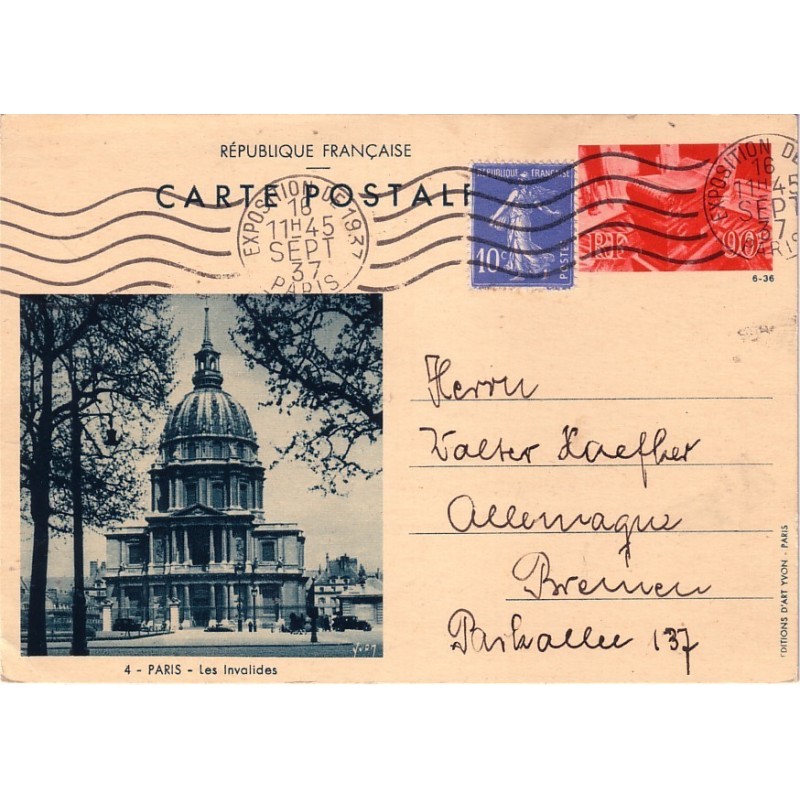 RÉPUBLIQUE FRANÇAISE
CARTE POSTALE
EXPOSITION DE 1937
16
11H45
SEPT
37
PARIS
RÉPUBLIQUE FRANÇAISE
10c
POSTES
RF
90c
EXPOSITION DE
16
11H45
SEPT
37
PARIS
6-36
Herrn
Walter
Allemagne
Bremen
Parkallee 137
EDITIONS D'ART YVON - PARIS
Yvon
4 - PARIS - Les Invalides